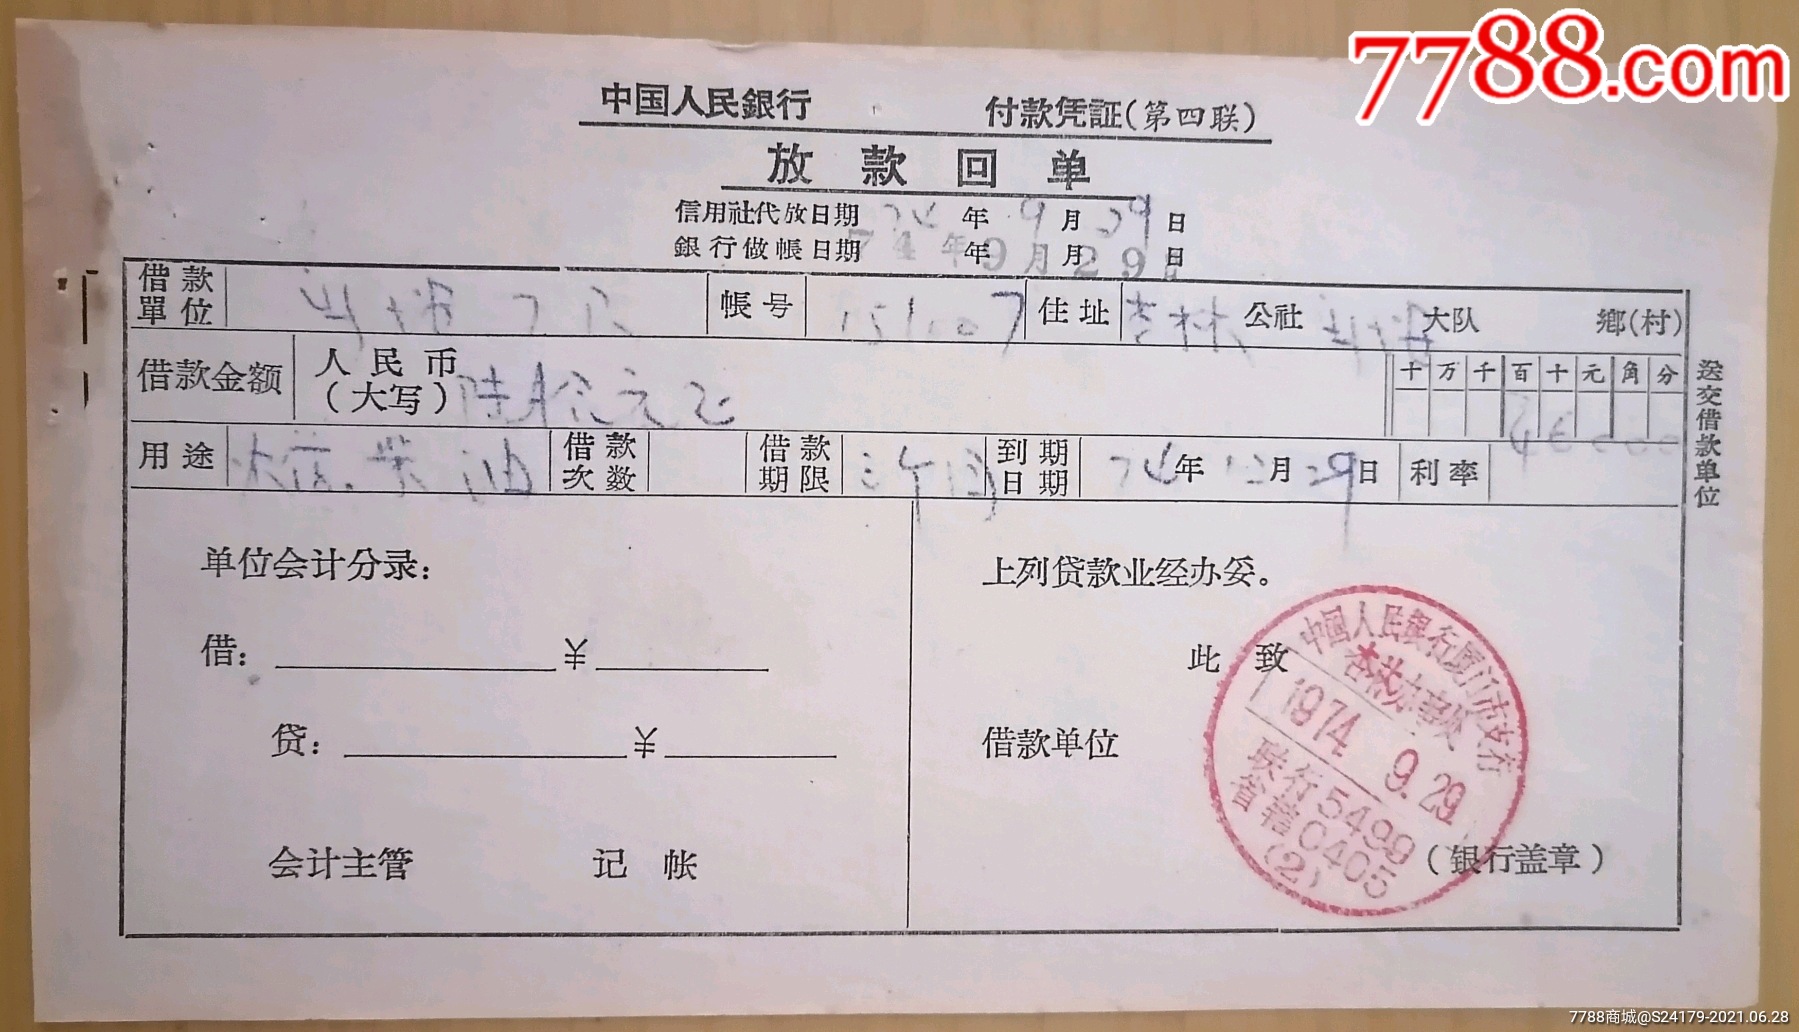 7788.com
中国人民銀行 付款凭証(第四联)
放款回单
信用社代放日期 74年9月29日
銀行做帳日期 74年9月29日
借款單位 帳号 151007 住址 杏林公社 大队 鄉(村)
借款金额 人民币(大写) 元正 十万千百十元角分
用途 柴油 借款次数 借款期限 三个月 到期日期 74年12月29日 利率
送交借款单位
单位会计分录:
上列贷款业经办妥。
借: ¥
此致
贷: ¥
借款单位
会计主管 记帐
(银行盖章)
中国人民銀行厦门市支行
杏林办事处
1974.9.29
联行5499
省辖0405
(2)
7788商城@S24179-2021.06.28